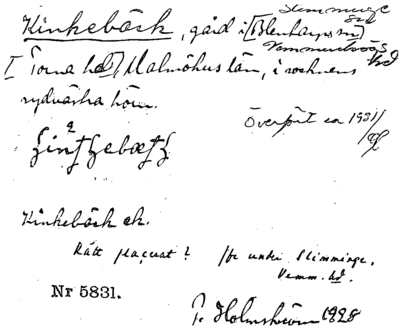 Slimminge
sn
Kinkebäck, gård i [Blentarps sn]
Vemmenhögs
hd
I Torna hd], Malmöhus län, i socknens
sydvästra hörn.
Överfört ca 1931/
Kinkebäck ek.
Rätt placerat? Jfr under Slimminge,
Vemm. hd.
Nr 5831.
Holmström 1928